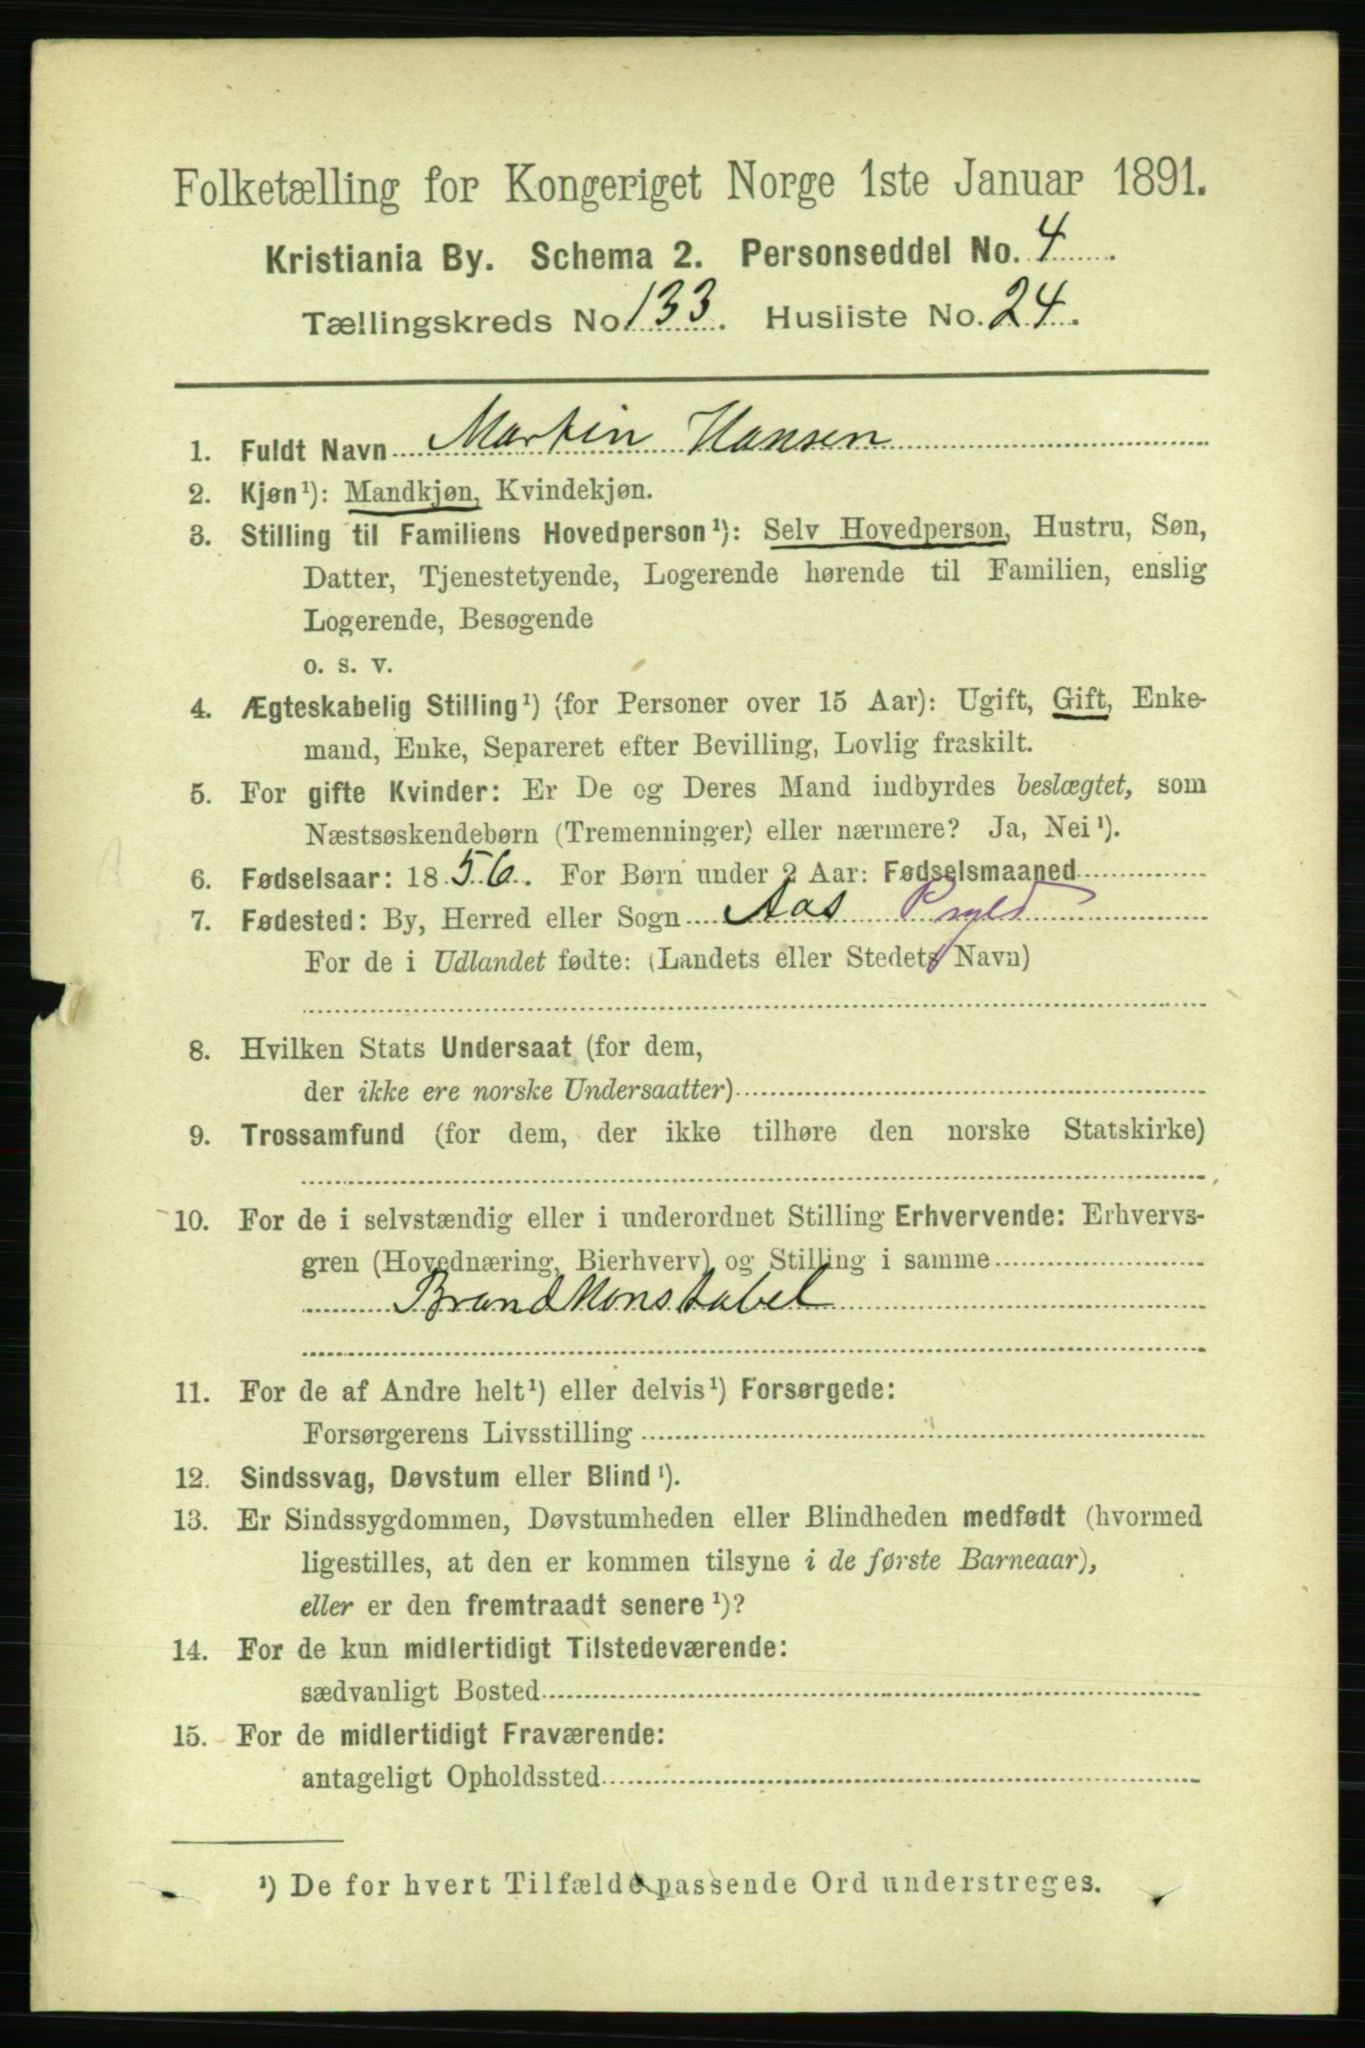 Folketælling for Kongeriget Norge 1ste Januar 1891.
Kristiania By. Schema 2. Personseddel No. 4.
Tællingskreds No 133. Husliste No. 24.
1. Fuldt Navn Martin Hansen
2. Kjøn¹): Mandkjøn, Kvindekjøn.
3. Stilling til Familiens Hovedperson¹): Selv Hovedperson, Hustru, Søn,
Datter, Tjenestetyende, Logerende hørende til Familien, enslig
Logerende, Besøgende
o. s. v.
4. Ægteskabelig Stilling¹) (for Personer over 15 Aar): Ugift, Gift, Enke-
mand, Enke, Separeret efter Bevilling, Lovlig fraskilt.
5. For gifte Kvinder: Er De og Deres Mand indbyrdes beslægtet, som
Næstsøskendebørn (Tremenninger) eller nærmere? Ja, Nei¹).
6. Fødselsaar: 1856. For Børn under 2 Aar: Fødselsmaaned
7. Fødested: By, Herred eller Sogn Aas
For de i Udlandet fødte: (Landets eller Stedets Navn)
8. Hvilken Stats Undersaat (for dem,
der ikke ere norske Undersaatter)
9. Trossamfund (for dem, der ikke tilhøre den norske Statskirke)
10. For de i selvstændig eller i underordnet Stilling Erhvervende: Erhvervs-
gren (Hovednæring, Bierhverv) og Stilling i samme
Brandkonstabel
11. For de af Andre helt¹) eller delvis¹) Forsørgede:
Forsørgerens Livsstilling
12. Sindssvag, Døvstum eller Blind¹).
13. Er Sindssygdommen, Døvstumheden eller Blindheden medfødt (hvormed
ligestilles, at den er kommen tilsyne i de første Barneaar),
eller er den fremtraadt senere¹)?
14. For de kun midlertidigt Tilstedeværende:
sædvanligt Bosted
15. For de midlertidigt Fraværende:
antageligt Opholdssted
¹) De for hvert Tilfælde passende Ord understreges.